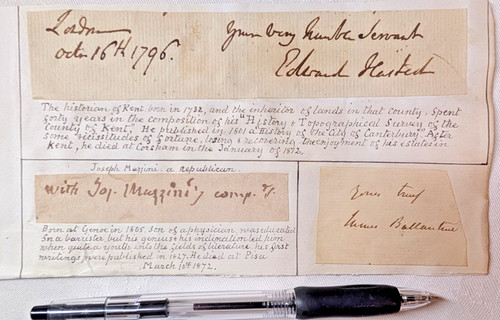 London
Octr 16th 1796.
Your very humble Servant
Edward Hasted
The historian of Kent born in 1732, and the inheritor of lands in that county. Spent
forty years in the composition of his "History & Topographical Survey of the
County of Kent". He published in 1801 a "History of the City of Canterbury". After
some vicissitudes of fortune, losing & recovering the enjoyment of his estates in
Kent, he died at Corsham in the January of 1812.
Joseph Mazzini. a republican.
with Jos. Mazzini's comp.
Born at Genoa in 1805. Son of a physician was educated
as a barrister but his genius & his inclination led him
when quite a youth into the fields of literature his first
writings were published in 1827. He died at Pisa
March 10th 1872.
Yours truly
James Ballantine